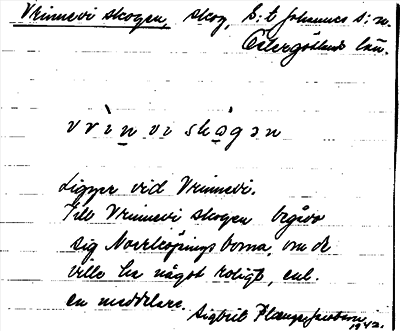 Vrinnevi skogen, skog, S:t Johannes s:n.
Östergötlands län.
vrìnvi skògən
Ligger vid Vrinnevi.
Till Vrinnevi skogen begåvo
sig Norrköpingsborna, om de
ville ha något roligt, enl.
en meddelare.
Sigbrit Plænge Jacobson
1942.